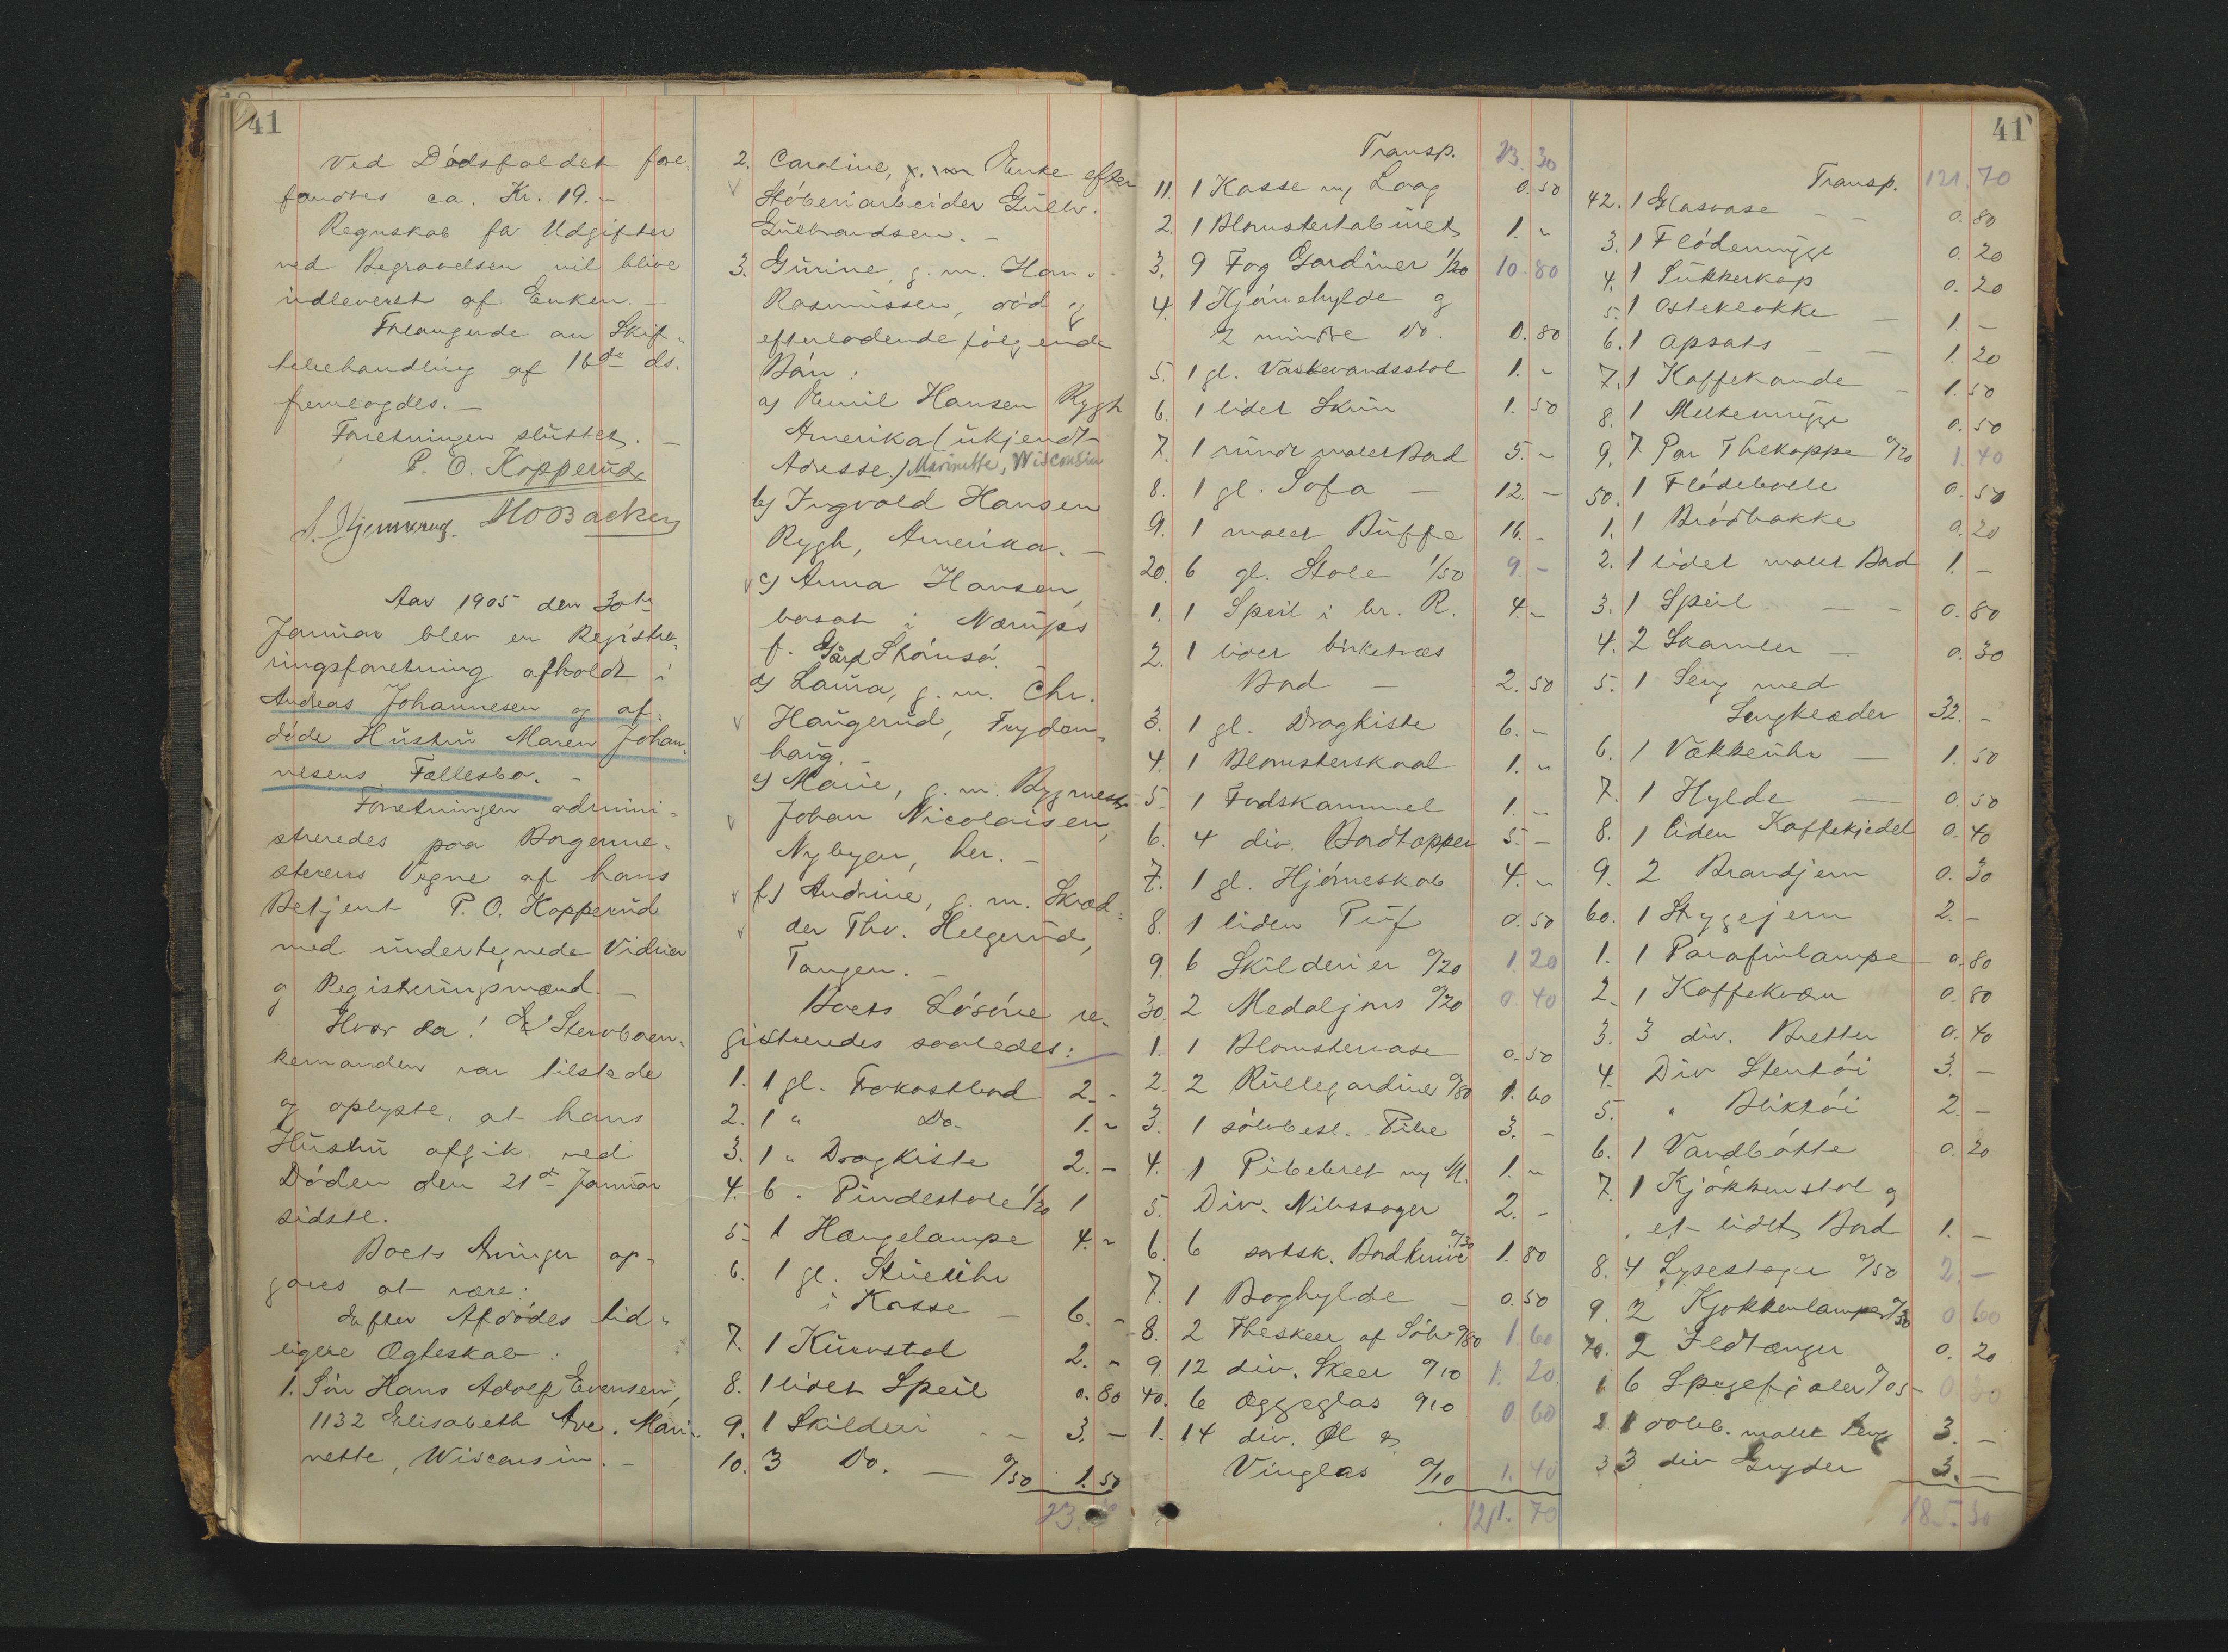 41
Ved Dödsfaldet fore-
fandtes ca. Kr. 19.-
Regnskab for Udgifter
ved Begravelsen vil blive
indleveret af Enken.-
Forlangende om Skif-
tebehandling af 16de ds.
fremlagdes.-
Forretningen sluttet.-
P. O. Kopperud
Aar 1905 den 30te
Januar blev en Registre-
ringsforretning afholdt i
Andreas Johannesen og af-
döde Hustru Maren Johan-
nesens Fællesbo.-
Forretningen admini-
streredes paa Borgerme-
sterens Vegne af hans
Betjent P. O. Kopperud
med undertegnede Vidner
og Registeringsmænd.-
Hvor da! Stervboen-
kemanden var tilstede
og oplyste, at hans
Hustru afgik ved
Döden den 21de Januar
sidste.
Boets Arvinger op-
gaves at være:
Efter Afdödes tid-
ligere Ægteskab:
1. Sön Hans Adolf Evensen,
1132 Elisabeth Ave. Mari-
nette, Wisconsin.-
2. Caroline, g. m. Enke efter
Stöberiarbeider Gulbr.
Gulbrandsen.-
3. Gurine, g. m. Hans
Rasmussen, död og
efterladende fölgende
Börn:
a) Emil Hansen Rygh
Amerika (ukjendt
Adresse.) Marinette, Wisconsin
b) Ingvald Hansen
Rygh, Amerika.-
c) Anna Hansen,
bosat i Nærups
f. Gaard Strömsö.
d) Laura, g. m. Chr.
Haugerud, Fryden-
haug.-
e) Marie, g. m. Bygmester
Johan Nicolaisen,
Nybyen, her.-
f) Andrine, g. m. Skræd-
der Thv. Helgerud,
Tangen.-
Boets Lösöre re-
gistreredes saaledes:
1. 1 gl. Frokostbord 2.-
2. 1 " Do. 1.-
3. 1 " Dragkiste 2.-
4. 6 " Pindestole 1/20 1
5. 1 Hængelampe 4.-
6. 1 gl. Stueuhr
i Kasse - 6.-
7. 1 Kurvstol 2.-
8. 1 lidet Speil 0.80
9. 1 Skilderi - 3.-
10. 3 Do. - 0/50 1.50
23.30
Transp. 23.30
11. 1 Kasse m/ Laag 0.50
2. 1 Blomstertabüret 1.-
3. 9 Fag Gardiner 1/20 10.80
4. 1 Hjörnehylde og
2 mindre Do. 0.80
5. 1 gl. Vaskevandsstol 1.-
6. 1 lidet Skrin 1.50
7. 1 rundt malet Bord 5.-
8. 1 gl. Sofa - 12.-
9. 1 malet Büffe 16.-
20. 6 gl. Stole 1/50 9.-
1. 1 Speil i br. R. 4.-
2. 1 lidet birketræs
Bord - 2.50
3. 1 gl. Dragkiste 6.-
4. 1 Blomsterskaal 1.-
5. 1 Fodskammel 1.-
6. 4 div. Bordtæpper 5.-
7. 1 gl. Hjörneskab 4.-
8. 1 liden Püf 0.50
9. 6 Skilderier 0/20 1.20
30. 2 Medaljons 0/20 0.40
1. 1 Blomstervase 0.50
2. 2 Rullegardiner 0/80 1.60
3. 1 sölvbesl. Pibe 3.-
4. 1 Pibebret m/ M. 1.-
5. Div. Nibssager 2.-
6. 6 sortsk. Bordknive 0/30 1.80
7. 1 Boghylde - 0.50
8. 2 Theskeer af Sölv 0/80 1.60
9. 12 div. Skeer 0/10 1.20
40. 6 Æggeglas 0/10 0.60
1. 14 div. Øl &
Vinglas 0/10 1.40
121.70
41
Transp. 121.70
42. 1 Glasvase - - 0.80
3. 1 Flödemugge 0.20
4. 1 Sukkerkop 0.20
5. 1 Osteklokke - 1.-
6. 1 Opsats - - 1.20
7. 1 Kaffekande - 1.50
8. 1 Melkemugge 0.50
9. 7 Par Thekoppe 0/20 1.40
50. 1 Flödebolle 0.50
1. 1 Brödbakke 0.20
2. 1 lidet malet Bord 1.-
3. 1 Speil - - 0.80
4. 2 Skamler - 0.30
5. 1 Seng med
Sengklæder 32.-
6. 1 Vækkeuhr - 1.50
7. 1 Hylde - 0.50
8. 1 liden Kaffekjedel 0.40
9. 2 Brandjern 0.30
60. 1 Strygejern 2.-
1. 1 Parafinlampe 0.80
2. 1 Kaffekværn 0.80
3. 3 div. Bretter 0.40
4. Div Stentöi 3.-
5. " Bliktöi 2.-
6. 1 Vandbötte 0.20
7. 1 Kjökkenstol og
et lidet Bord 1.-
8. 4 Lysestager 0/50 2.-
9. 2 Kjökkenlamper 0/30 0.60
70. 2 Ildtænger 0.20
1 6 Spegefjæler 0/05 0.30
2. 1 dobb. malet Seng 3.-
3 3 div Gryder 3.-
185.30